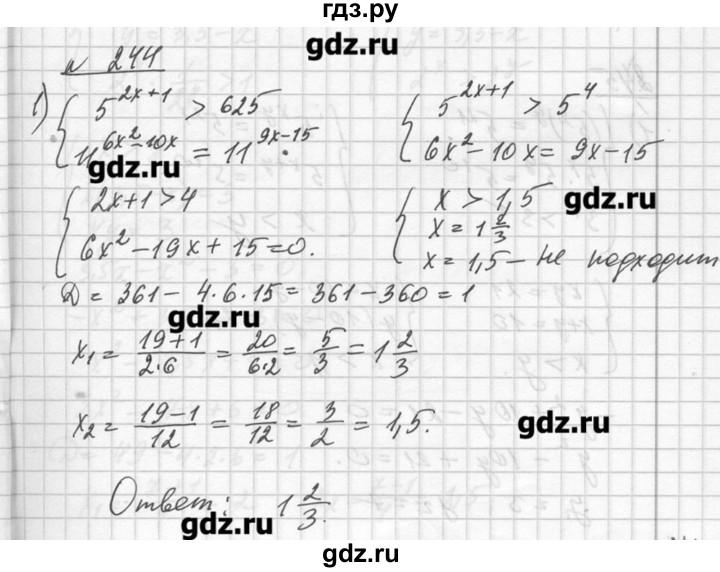 гдз.ру
gdz.ru
№ 244
1) { 5^(2x+1) > 625
11^(6x²-10x) = 11^(9x-15).
{ 5^(2x+1) > 5^4
6x² - 10x = 9x - 15
gdz.ru
gdz.ru
{ 2x+1 > 4
6x² - 19x + 15 = 0.
{ x > 1,5
x = 1 2/3
x = 1,5 - не подходит
D = 361 - 4·6·15 = 361 - 360 = 1
gdz.ru
x₁ = (19+1)/(2·6) = 20/(6·2) = 5/3 = 1 2/3
x₂ = (19-1)/12 = 18/12 = 3/2 = 1,5.
gdz.ru
Ответ: 1 2/3.
gdz.ru
gdz.ru